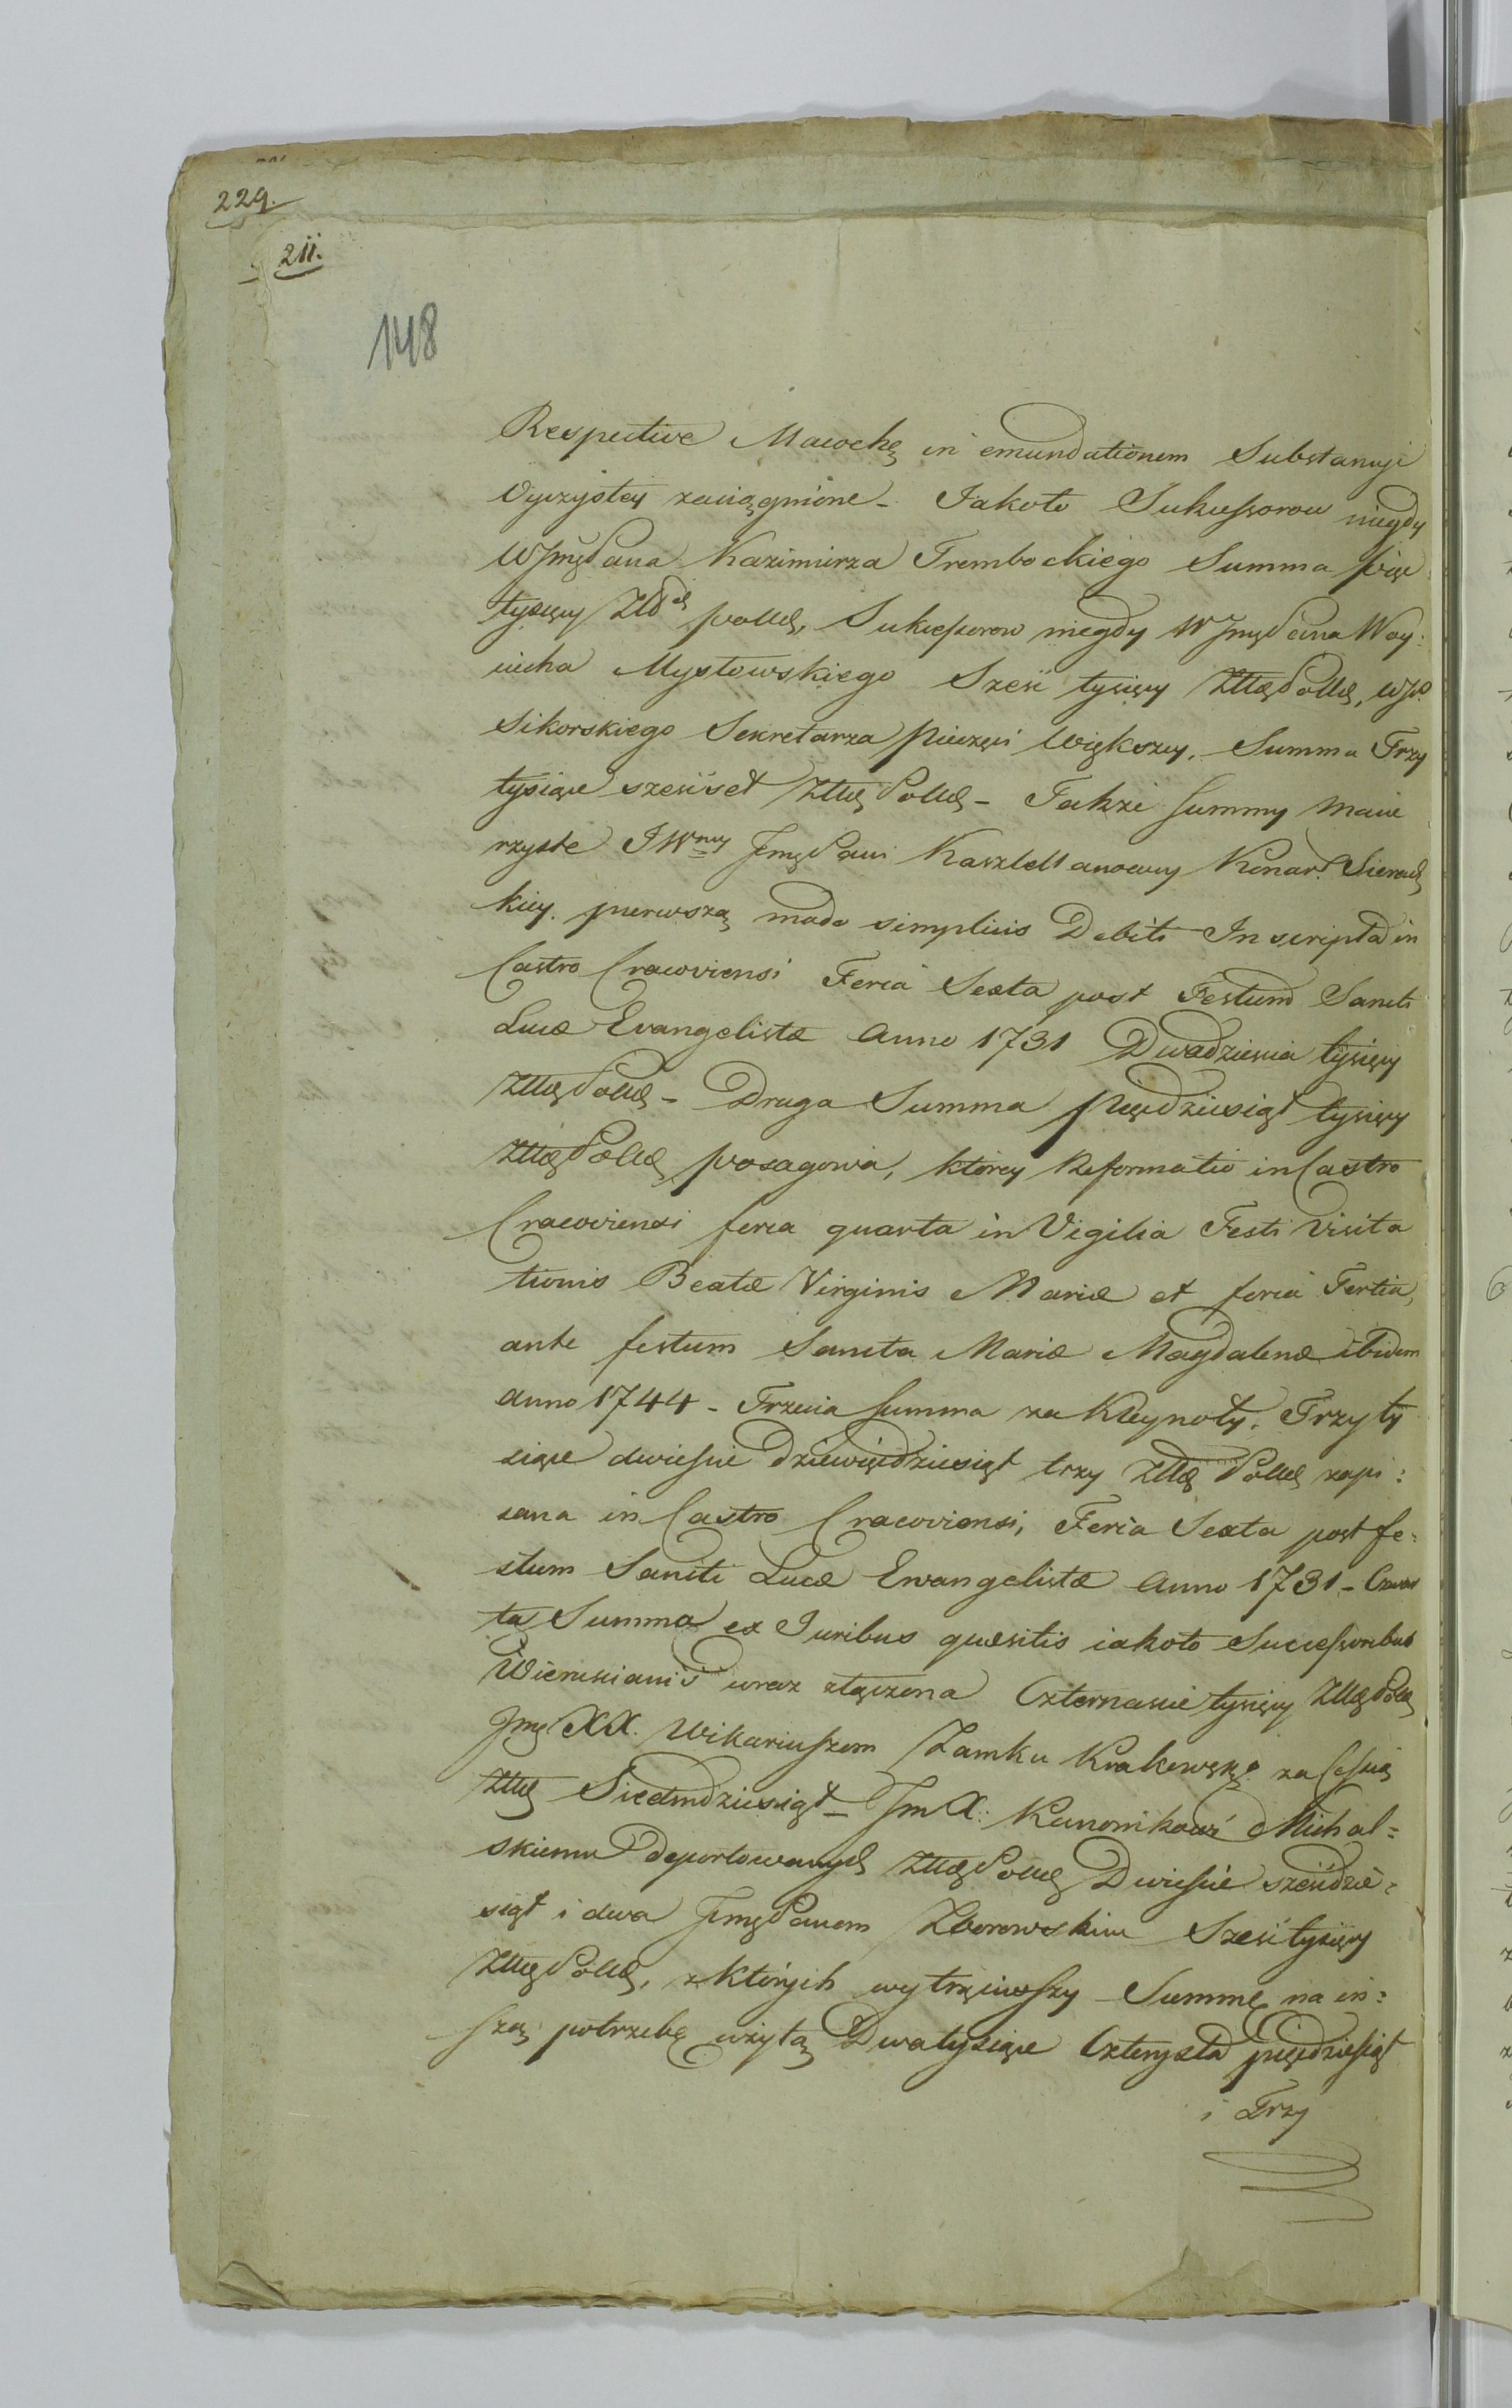 229.
211.
148
Respective Macochę in emundationem Substancyi
Oyczystey zaciągnione - Jakoto Sukcessorow niegdy
WJmę Pana Kazimierza Trembeckiego Summa pięć
tysięcy Złł polłł, Sukcessorow niegdy WJmę Pana Woy:
ciecha Mysłowskiego Sześć tysięcy Złłł Polłł, WJP.
Sikorskiego Sekretarza pieczęci Większey, Summa Trzy
tysiące sześćset Złłł Polłł - Takze Summy Macie
rzyste JWney Jmę Pani Kasztellanowey Konar. Sieradz
kiey. pierwszą modo simplicis Debiti Inscripta in
Castro Cracoviensi Feria Sexta post Festum Sancti
Lucæ Evangelistæ Anno 1731 Dwadziescia tysięcy
Złłł Polłł - Druga Summa pięćdziesiąt tysięcy
Złłł Polłł posagowa, ktorey Reformatio in Castro
Cracoviensi feria quarta in Vigilia Festi Visita
tionis Beatæ Virginis Mariæ et feria Tertia,
ante festum Sancta Mariæ Magdalenæ ibidem
anno 1744 - Trzecia Summa za Kleynoty, Trzy ty
siące dwieście dziewięćdziesiąt trzy Złłł Polłł zapi:
sana in Castro Cracoviensi, Feria Sexta post fe:
stum Sancti Lucæ Ewangelistæ Anno 1731 - Czwar
ta Summa ex Juribus quæsitis iakoto Successoribus
wraz złączona Czternascie tysięcy Złłł Polłł
Jmę XX. Wikariuszom Zamku Krakowskę. za Cessią
Złłł Siedmdziesiąt - Jm X: Kanonikowi Michal=
skiemu deportowanych Złłł Polłł Dwieście sześćdzie=
siąt i dwa Jmę Panem Zborowskim Sześć tysięcy
Złłł Polłł, z ktorych wytrąciwszy Summę na in=
szą potrzebę użytą Dwa tysiące Czterysta pięćdziesiąt
i Trzy